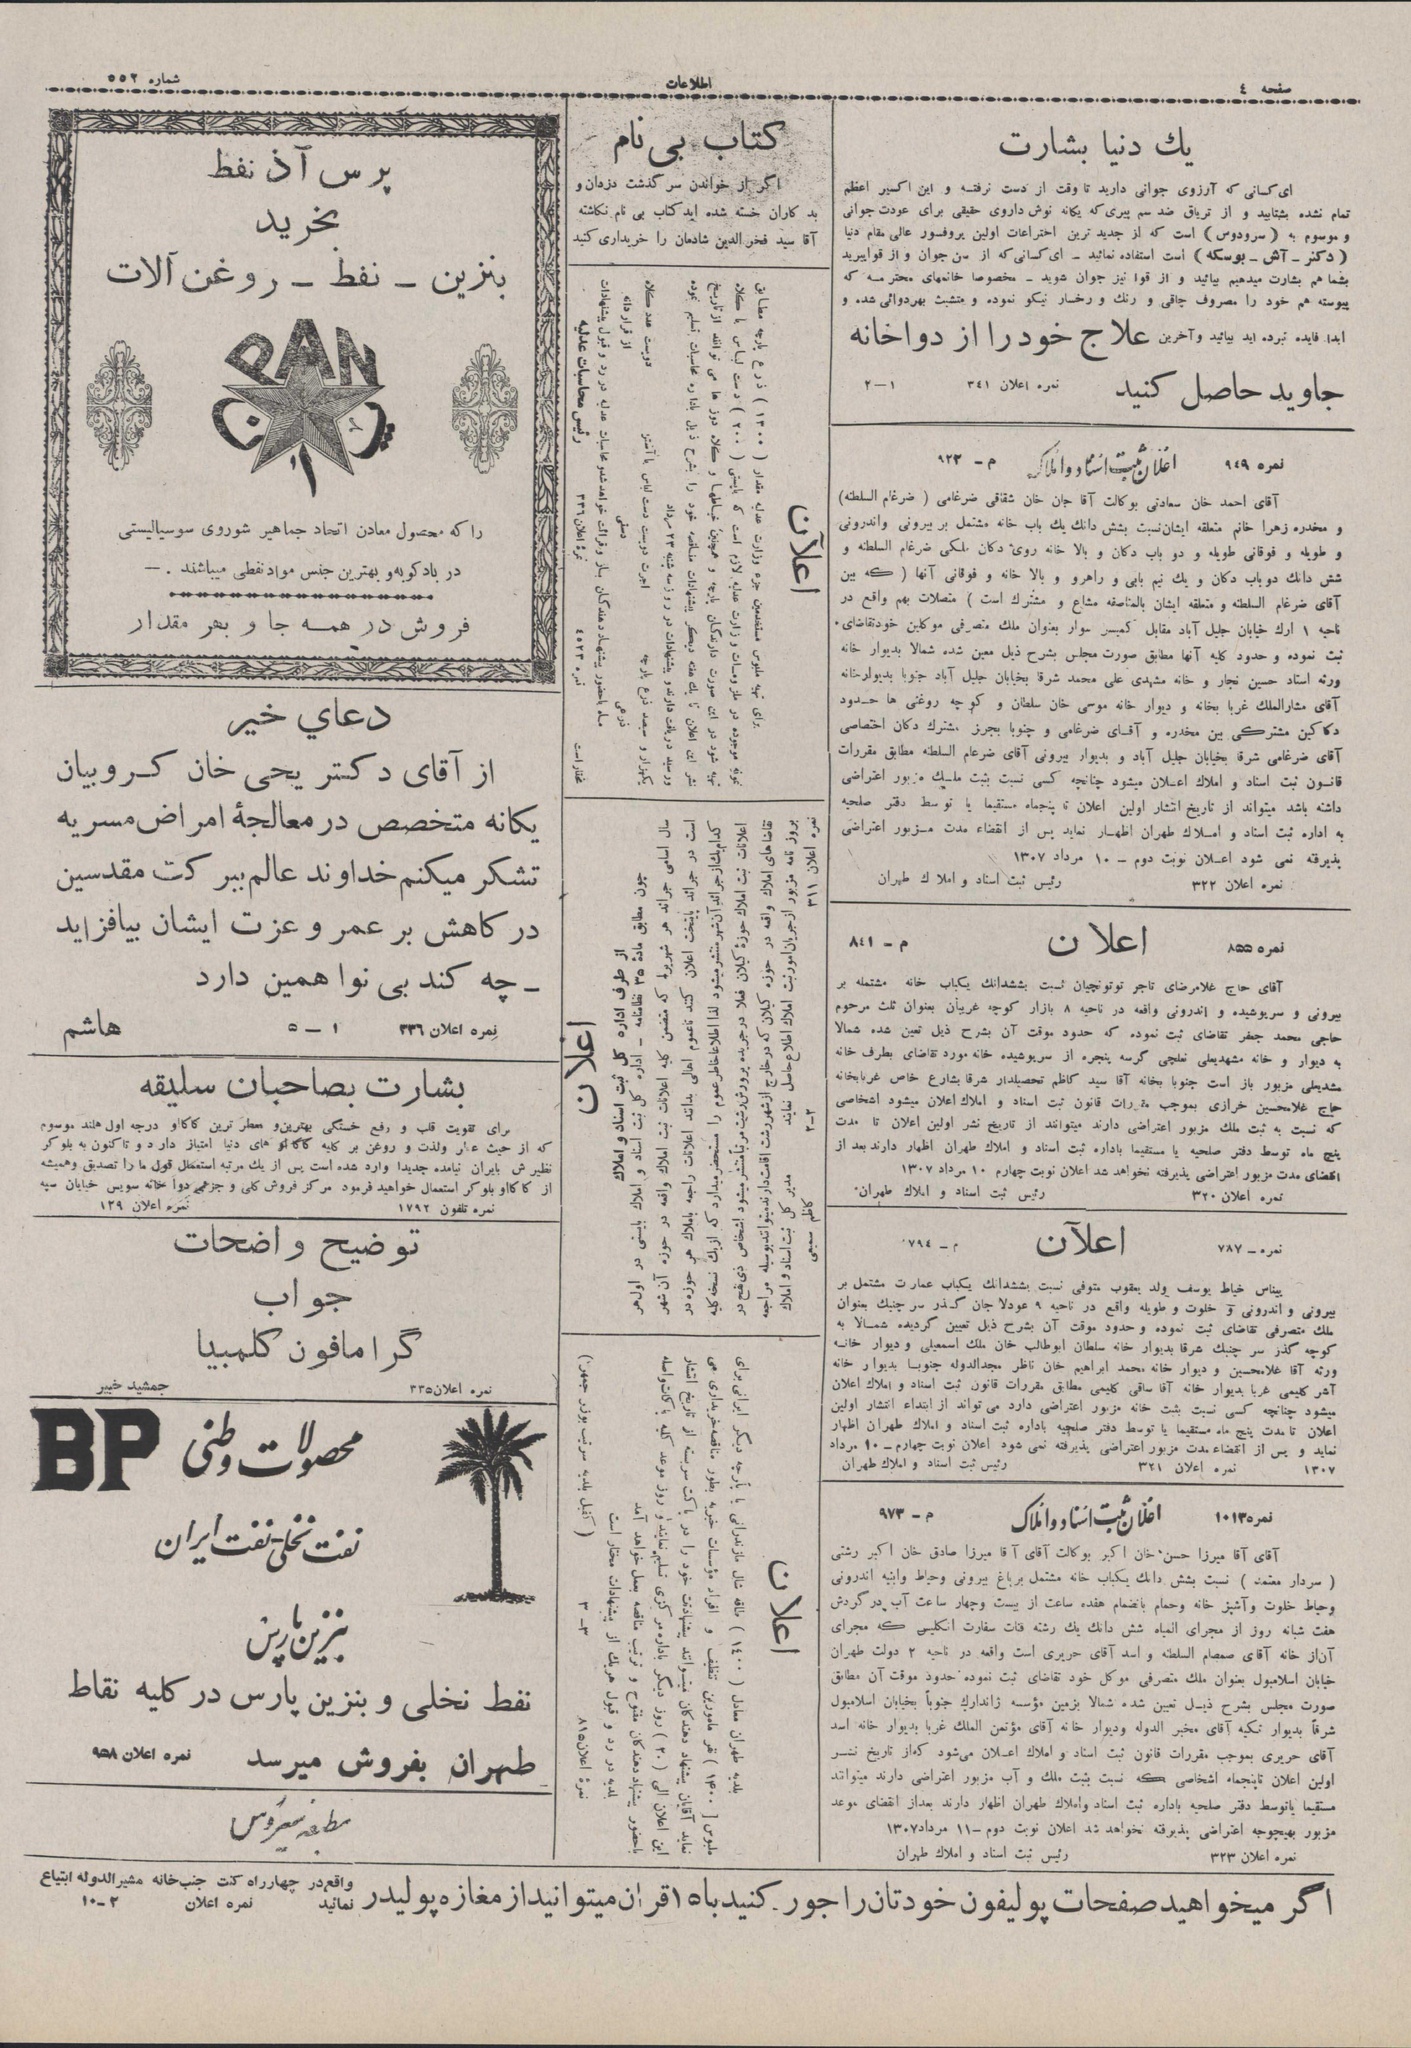 صفحه ٤
اطلاعات
شماره ٥٥٢
يك دنيا بشارت
ای کسانی که آرزوی جوانی دارید تا وقت از دست نرفته و این اکسیر اعظم
تمام نشده بشتابید و از تریاق ضد سم پیری که یگانه نوش داروی حقیقی برای عودت جوانی
و موسوم به ( سرودوس ) است که از جدید ترین اختراعات اولین پروفسور عالی مقام دنیا
( دکتر ـ آش ـ بوسکه ) است استفاده نمائید ـ ای کسانی که از سن جوان و از قوا پیرید
بشما هم بشارت میدهیم بیائید و از قوا نیز جوان شوید ـ مخصوصا خانمهای محترمه که
پیوسته هم خود را مصروف چاقی و رنك و رخسار نیکو نموده و متشبث بهر دوائی شده و
ابدا فایده نبرده اید بیائید و آخرین علاج خود را از دواخانه
جاوید حاصل کنید
نمره اعلان ٣٤١
١—٢
نمره ٩٤٩
اعلان ثبت اسناد و املاك
م ـ ٩٢٣
آقای احمد خان سعادتی بوکالت آقا جان خان شقاقی ضرغامی ( ضرغام السلطنه )
و مخدره زهرا خانم متعلقه ایشان نسبت بشش دانك يك باب خانه مشتمل بر بیرونی و اندرونی
و طویله و فوقانی طویله و دو باب دکان و بالا خانه روی دکان ملکی ضرغام السلطنه و
شش دانك دو باب دکان و يك نیم بابی و راهرو و بالا خانه و فوقانی آنها ( که بین
آقای ضرغام السلطنه و متعلقه ایشان بالمناصفه مشاع و مشترك است ) متصلات بهم واقع در
ناحیه ١ ارك خیابان جلیل آباد مقابل کمیسر سوار بعنوان ملك متصرفی موکلین خود تقاضای
ثبت نموده و حدود کلیه آنها مطابق صورت مجلس بشرح ذیل معین شده شمالا بدیوار خانه
ورثه استاد حسین نجار و خانه مشهدی علی محمد شرقا بخیابان جلیل آباد جنوبا بدیوار خانه
آقای مشار الملك غربا بخانه و دیوار خانه موسی خان سلطان و کوچه روغنی ها حدود
دکاکین مشترکی بین مخدره و آقای ضرغامی و جنوبا بجرز مشترك دکان اختصاصی
آقای ضرغامی شرقا بخیابان جلیل آباد و بدیوار بیرونی آقای ضرغام السلطنه مطابق مقررات
قانون ثبت اسناد و املاك اعلان میشود چنانچه کسی نسبت بثبت ملك مزبور اعتراضی
داشته باشد میتواند از تاریخ انتشار اولین اعلان تا پنجماه مستقیما یا توسط دفتر صلحیه
به اداره ثبت اسناد و املاك طهران اظهار نماید پس از انقضاء مدت مزبور اعتراضی
پذیرفته نمی شود اعلان نوبت دوم ـ ١٠ مرداد ١٣٠٧
نمره اعلان ٣٢٢
رئیس ثبت اسناد و املاك طهران
نمره ٨٥٥
اعلان
م ـ ٨٤١
آقای حاج غلامرضای تاجر توتونچیان نسبت بششدانك یکباب خانه مشتمله بر
بیرونی و سرپوشیده و اندرونی واقعه در ناحیه ٨ بازار کوچه غریبان بعنوان ثلث مرحوم
حاجی محمد جعفر تقاضای ثبت نموده که حدود موقت آن بشرح ذیل تعین شده شمالا
به دیوار و خانه مشهدیعلی نعلچی گرسه پنجره از سرپوشیده خانه مورد تقاضای بطرف خانه
مشدیعلی مزبور باز است جنوبا بخانه آقا سید کاظم تحصیلدار شرقا بشارع خاص غربا بخانه
حاج غلامحسین خرازی بموجب مقررات قانون ثبت اسناد و املاك اعلان میشود اشخاصی
که نسبت به ثبت ملك مزبور اعتراضی دارند میتوانند از تاریخ نشر اولین اعلان تا مدت
پنج ماه توسط دفتر صلحیه یا مستقیما باداره ثبت اسناد و املاك طهران اظهار دارند بعد از
انقضای مدت مزبور اعتراضی پذیرفته نخواهد شد اعلان نوبت چهارم ١٠ مرداد ١٣٠٧
نمره اعلان ٣٢٠
رئیس ثبت اسناد و املاك طهران
نمره ـ ٧٨٧
اعلان
م ـ ٧٩٤
بیناس خیاط یوسف ولد یعقوب متوفی نسبت بششدانك یکباب عمارت مشتمل بر
بیرونی و اندرونی و خلوت و طویله واقع در ناحیه ٩ عودلاجان گذر سر چنبك بعنوان
ملك متصرفی تقاضای ثبت نموده و حدود موقت آن بشرح ذیل تعیین گردیده شمالا به
کوچه گذر سر چنبك شرقا بدیوار خانه سلطان ابوطالب خان ملك اسمعیلی و دیوار خانه
ورثه آقا غلامحسین و دیوار خانه محمد ابراهیم خان ناظر مجدالدوله جنوبا بدیوار خانه
آشر کلیمی غربا بدیوار خانه آقا ساقی کلیمی مطابق مقررات قانون ثبت اسناد و املاك اعلان
میشود چنانچه کسی نسبت بثبت خانه مزبور اعتراضی دارد می تواند از ابتداء انتشار اولین
اعلان تا مدت پنج ماه مستقیما یا توسط دفتر صلحیه باداره ثبت اسناد و املاك طهران اظهار
نماید و پس از انقضاء مدت مزبور اعتراضی پذیرفته نمی شود اعلان نوبت چهارم ـ ١٠ مرداد
١٣٠٧
نمره اعلان ٣٢١
رئیس ثبت اسناد و املاك طهران
نمره ١٠١٣
اعلان ثبت اسناد و املاك
م ـ ٩٧٣
آقای آقا میرزا حسن خان اکبر بوکالت آقای آقا میرزا صادق خان اکبر رشتی
( سردار معتمد ) نسبت بشش دانك یکباب خانه مشتمل بر باغ بیرونی وحیاط وابنیه اندرونی
وحیاط خلوت وآشپز خانه وحمام بانضمام هفده ساعت از بیست وچهار ساعت آب درگردش
هفت شبانه روز از مجرای المیاه شش دانك يك رشته قنات سفارت انگلیسی که مجرای
آن از خانه آقای صمصام السلطنه و اسد آقای حریری است واقعه در ناحیه ٢ دولت طهران
خیابان اسلامبول بعنوان ملك متصرفی موکل خود تقاضای ثبت نموده حدود موقت آن مطابق
صورت مجلس بشرح ذیل تعیین شده شمالا بزمین مؤسسه ژاندارك جنوباً بخیابان اسلامبول
شرقاً بدیوار تکیه آقای مخبر الدوله ودیوار خانه آقای مؤتمن الملك غربا بدیوار خانه اسد
آقای حریری بموجب مقررات قانون ثبت اسناد و املاك اعلان می‌شود که از تاریخ نشر
اولین اعلان تاپنجماه اشخاصی که نسبت بثبت ملك و آب مزبور اعتراضی دارند میتوانند
مستقیما یاتوسط دفتر صلحیه باداره ثبت اسناد واملاك طهران اظهار دارند بعد از انقضای موعد
مزبور بهیچوجه اعتراضی پذیرفته نخواهد شد اعلان نوبت دوم ـ ١١ مرداد ١٣٠٧
نمره اعلان ٣٢٣
رئیس ثبت اسناد و املاك طهران
کتاب بی نام
اگر از خواندن سر گذشت دزدان و
بد کاران خسته شده اید کتاب بی نام نگاشته
آقا سید فخر الدین شادمان را خریداری کنید
اعلان
برای تهیه ملبوس مستخدمین جزء وزارت عدلیه مقدار ( ١٣٠٠ ) ذرع پارچه مطابق
نمونه موجوده در ملزومات وزارت عدلیه لازم است که بایستی ( ٢٠٠ ) دست لباس با کلاه
تهیه شود در این صورت دارندگان پارچه و همچنین خیاطها و کلاه دوز ها می توانند از تاریخ
نشر این اعلان تا يك هفته دیگر پیشنهادات مناقصه خود را بشرح ذیل باداره محاسبات تسلیم نموده
ورسید دریافت دارند و پیشنهادات در روز سه شنبه ٢٣ مرداد
یکهزار و سیصد ذرع پارچه
اجرت دویست دست لباس با آستر
دویست عدد کلاه
ذرعی
دستی
از قرار دانه
ماه باحضور پیشنهاد دهندگان باز وقرائت خواهد شد و محاسبات عدلیه در رد و قبول پیشنهادات
مختار است
نمره ٤٥٢٣
نمرهٔ اعلان ٣٣٦
رئیس محاسبات عدلیه
اعلان
از طرف اداره کل ثبت اسناد و املاك
چون مطابق مادهٔ ٣٥ نظامنامه ـ اداره کل ثبت اسناد و املاك بایستی در اول هر
سال اسامی جراید هر شهریرا که متضمن کلیه اعلانات ثبت املاك واقعه در حوزه آن شهر
است در جراید پایتخت اعلان کنند تا عموم اهالی بدانند اعلانات راجعه باملاك هر حوزه در
کدام یك از جراید آن شهر منتشر میشود لذا اطلاعا خاطر عموم را مستحضر میدارد که از يك نسخه کلیه
اعلانات ثبت املاك حوزهٔ گیلان فعلا در جریده پرورش رشت مرتباً منتشر میشود اشخاص ذی نفع در
تقاضاهای املاك واقعه در حوزه گیلان که در خارج از شهر رشت اقامت دارند میتوانند بوسیله مراجعه
بروزنامه مزبور از جریان امور ثبت املاك اطلاع حاصل نمایند
مدیر کل ثبت اسناد و املاك
نمره اعلان ٣١١
٢—٢
کاظم سمیعی
اعلان
بلدیه طهران معادل ( ١٤٠٠ ) طاقه شال مازندرانی یا پارچه دیگر ایرانی برای
ملبوس [ ١٤٠٠ ) نفر مامورین تنظیف و افراد مؤسسات خیریه بطور مناقصه خریداری می
نماید آقایان پیشنهاد دهندگان میتوانند پیشنهادات خود را در پاکت سربسته از تاریخ انتشار
این اعلان الی ( ٢٠ ) روز دیگر باداره مرکزی تسلیم نمایند و روز موعد کلیه پاکات واصله
باحضور پیشنهاد دهندگان مفتوح و ترتیب مناقصه بعمل خواهد آمد
بلدیه در رد و قبول هریك از پیشنهادات مختار است
نمرهٔ اعلان ٨١٥
٣—٣
( کفیل بلدیه سرتیپ بوذرجمهری )
پرس آذ نفط
بخرید
بنزین ـ نفط ـ روغن آلات
PAN
را که محصول معادن اتحاد جماهیر شوروی سوسیالیستی
در بادکوبه و بهترین جنس مواد نفطی میباشند . —
فروش در همه جا و بهر مقدار
دعای خیر
از آقای دکتر یحی خان کروبیان
یگانه متخصص در معالجهٔ امراض مسریه
تشکر میکنم خداوند عالم ببرکت مقدسین
درگاهش بر عمر و عزت ایشان بیافزاید
ـ چه کند بی نوا همین دارد
نمره اعلان ٣٣٦
١ — ٥
هاشم
بشارت بصاحبان سلیقه
برای تقویت قلب و رفع خستگی بهترین و معطر ترین کاکائو درجه اول هلند موسوم
که از حیث عطر ولذت و روغن بر کلیه کاکائو های دنیا امتیاز دارد و تاکنون به بلوکر
نظیرش بایران نیامده جدیدا وارد شده است پس از يك مرتبه استعمال قول ما را تصدیق وهمیشه
از کاکااو بلوکر استعمال خواهید فرمود مرکز فروش کلی و جزءی دوا خانه سویس خیابان سپه
نمره تلفون ١٧٩٢
نمره اعلان ١٢٩
توضیح واضحات
جواب
گرامافون کلمبیا
نمره اعلان ٣٣٥
جمشید خیبر
BP
محصولات وطنی
نفت نخلی ـ نفت ایران
بنزین پارس
نفط نخلی و بنزین پارس در کلیه نقاط
طهران بفروش میرسد
نمره اعلان ٩٥٨
مطبعه سیروس
اگر میخواهید صفحات پولیفون خودتان را جور کنید با ١٥ قران میتوانید از مغازه پولیدر
واقع در چهار راه کنت جنب خانه مشیر الدوله ابتیاع
نمائید
نمره اعلان
٢—١٠